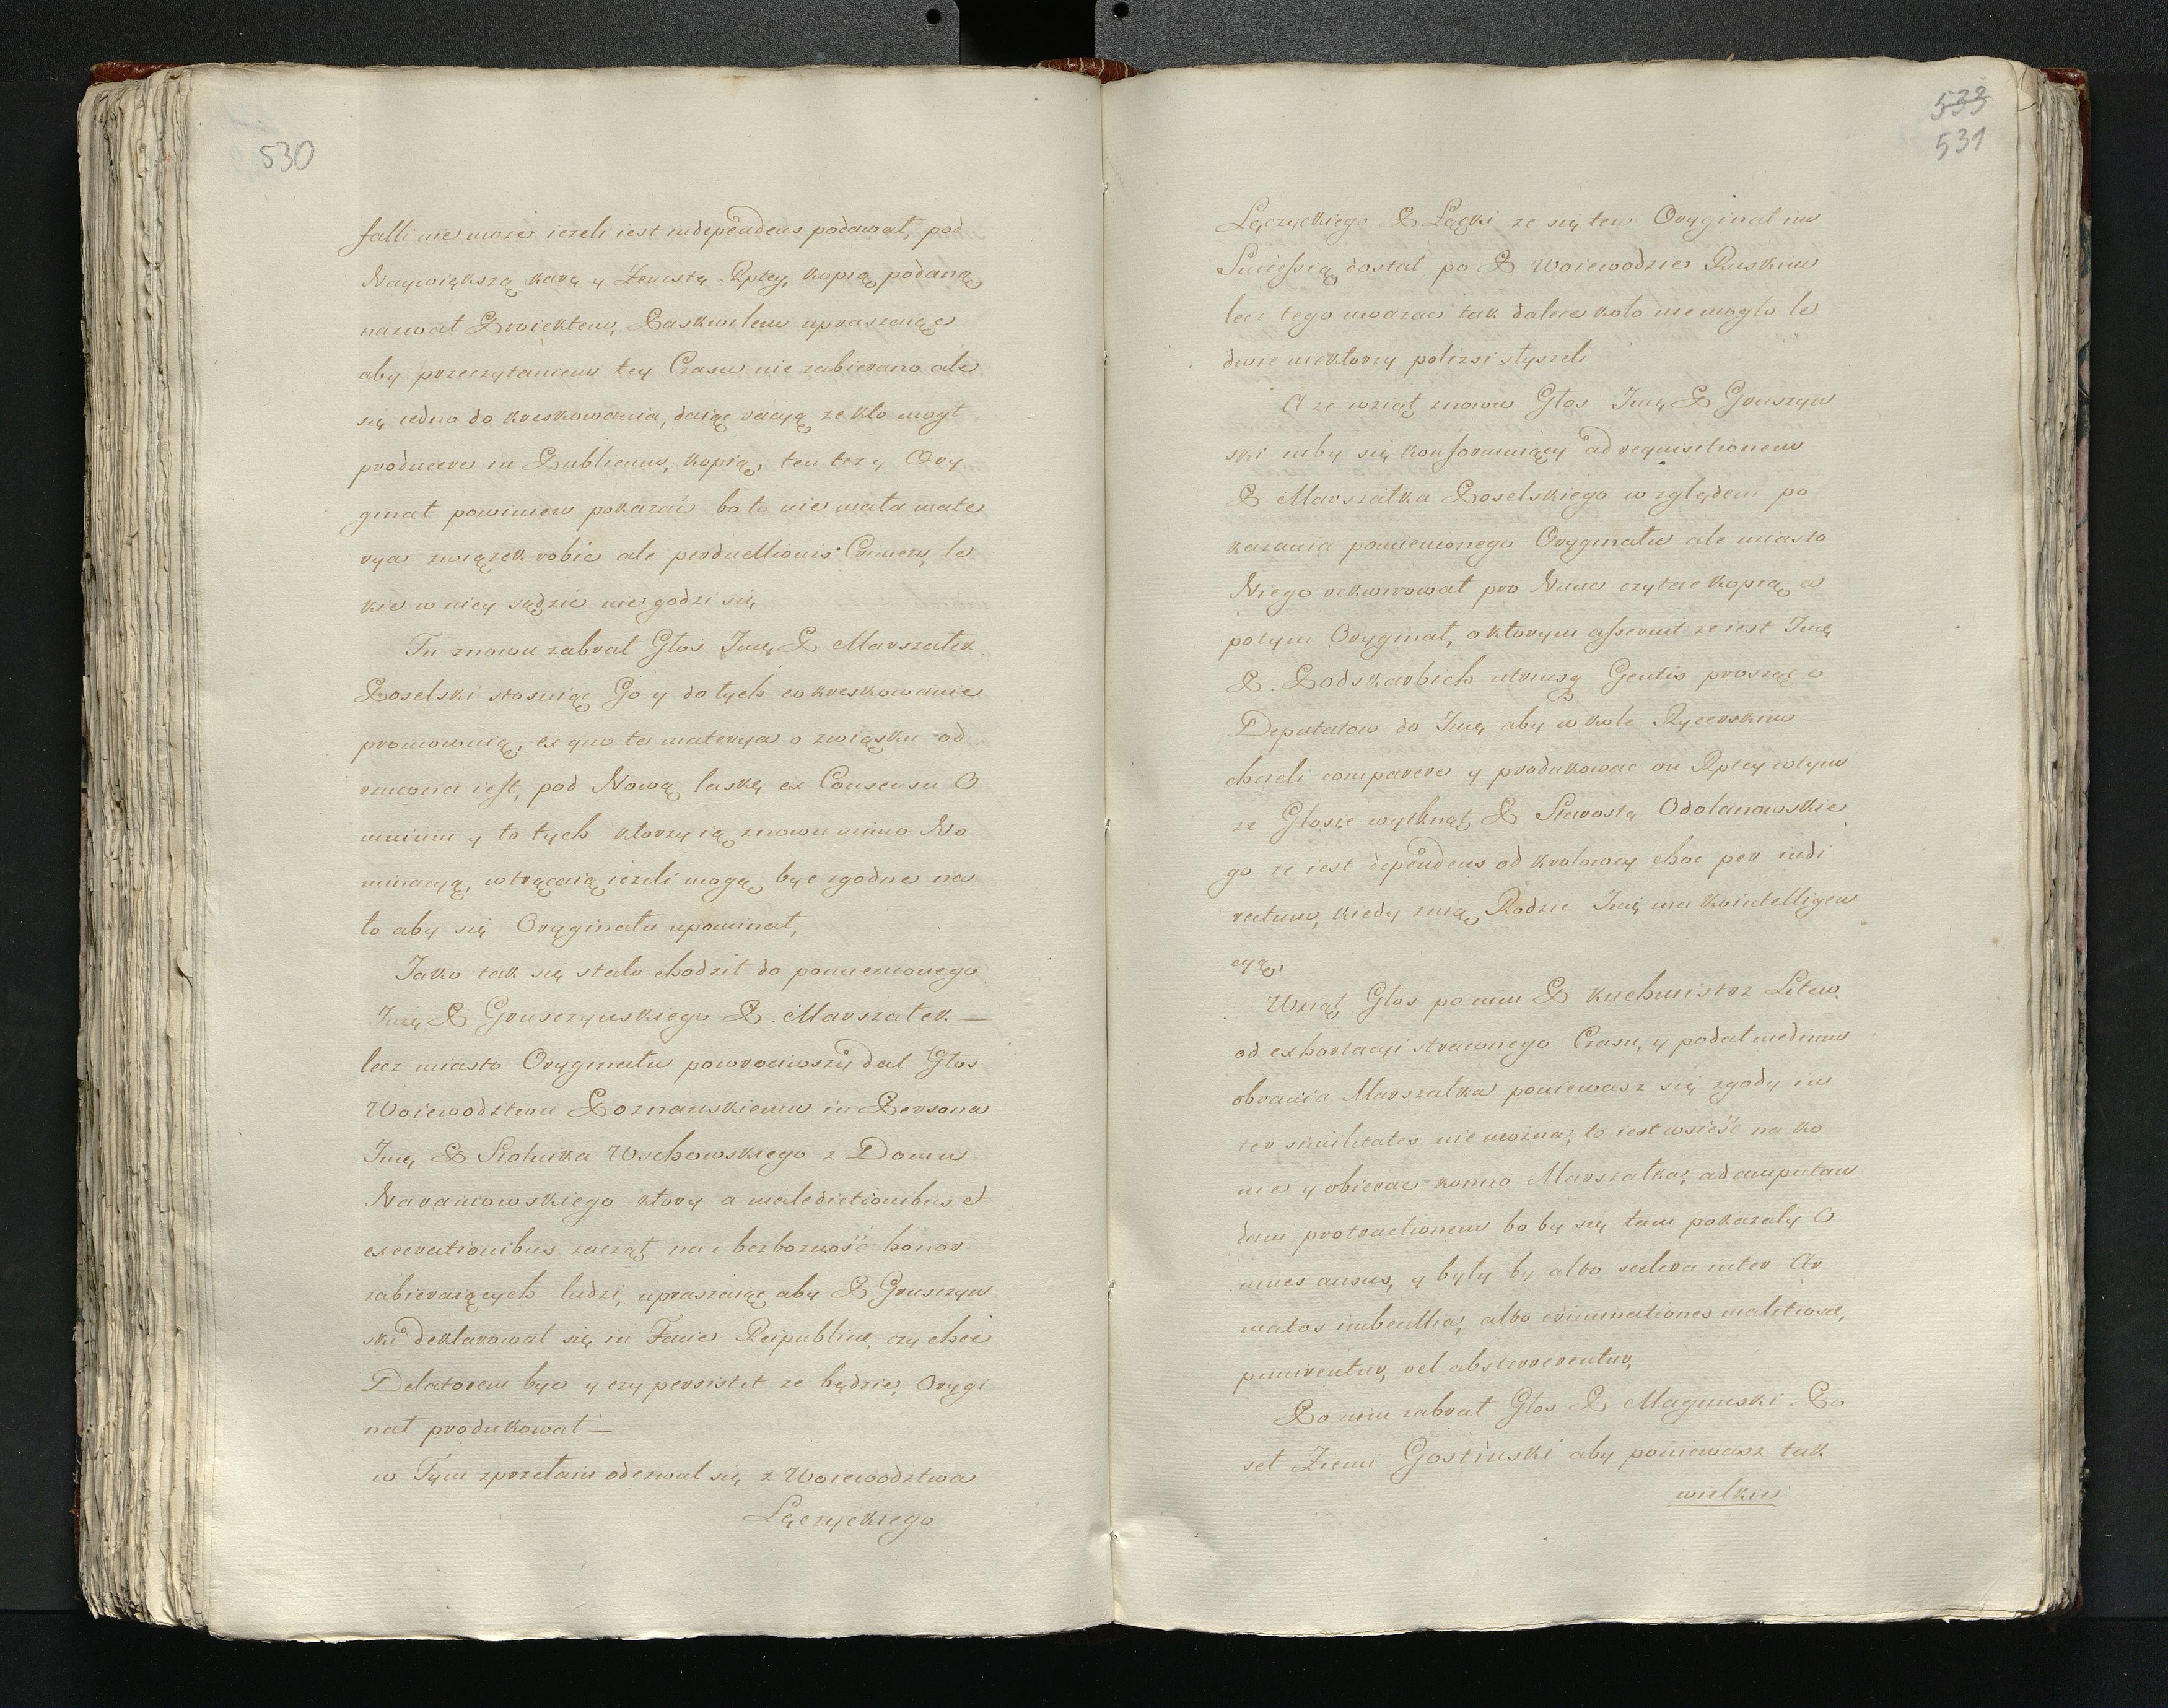 530
falli nie może ieżeli iest independens podawał, pod
Naywiększą karą y Zemstą Rptey, kopią podaną
nazwał Proiektem, Paskwilem upraszaiąc
aby przeczytaniem tey Czasu nie zabierano ale
się iedno do kreskowania, daiąc racyą że kto mogł
producere in Publicum, kopią, ten też y Ory
ginał powinien pokazać bo to nie mała mate
rya związek robic ale perduellionis Crimen, le
kie w niey sądzić nie godzi się
Tu znowu zabrał Głos Jmę P Marszałek
Poselski stosuiąc Go y do tych co kreskowanie
promowuią, ex quo ta materya o związku od
rzucona iest, pod Nową laskę ex Consensu O
mnium y to tych ktorzy ią znowu mimo No
minacyą, wtrącaią ieżeli mogą być zgodne na
to aby się Oryginału upominał,
Jako tak się stało chodził do pomienionego
Jmę P Gruszczynskiego P. Marszałek —
lecz miasto Oryginału powrociwszy dał Głos
Woiewodztwu Poznanskiemu in Persona
Jmę P Stolnika Wschowskiego z Domu
Naramowskiego ktory a maledictionibus et
execrationibus zaczął na bezbożność honor
zabieraiących ludzi, upraszaiąc aby P Gruszczyn
ski deklarował się in Facie Reipublicæ, czy chce
Delatorem być y czy persistet że będzie, Orygi
nał produkował —
w Tym zprzetaiu odezwał się z Woiewodztwa
Łęczyckiego
533
531
Łęczyckiego P Łącki że się ten Oryginał im
Sucieſsią dostał po P Woiewodzie Ruskim
lecz tego uważac tak dalece koło nie mogło le
dwie niektorzy poliżsi słyszeli
A że wziął znowu Głos Jmę P Gruszczyn
ski niby się konformuiący ad requisitionem
P Marszałka Poselskiego względem po
kazania pomienionego Oryginału ale miasto
Niego rekwirował pro Nunc czytac kopią a
potym Oryginał, o ktorym aſseruit że iest Jmę
P. Podskarbich utriusq Gentis prosząc o
Deputatow do Jmę aby w kole Rycerskim —
chcieli comparere y produkowac on Rptey w tym
że Głosie wytknął P Starostę Odolanowskie
go że iest dependens od krolowey choc per indi
rectum, kiedy z nią Rodzic Jmę ma kointelligen
cyą,
Wziął Głos po nim P kuchmistrz Litew.
od exhortacyi straconego Czasu, y podał medium
obrania Marszałka poniewasz się zgody in
ter similitates nie można, to iest wsieść na ko
nie y obierac konno Marszałka, ad amputan
dam protractionem bo by się tam pokazały O
mnes ausus, y były by albo scelera inter Ar
matos imbecillia, albo criminationes malitiosæ,
punirentur, vel absterrerentur,
Po nim zabrał Głos P Magnuski Po
seł Ziemi Gostinski aby poniewasz tak
wielkie